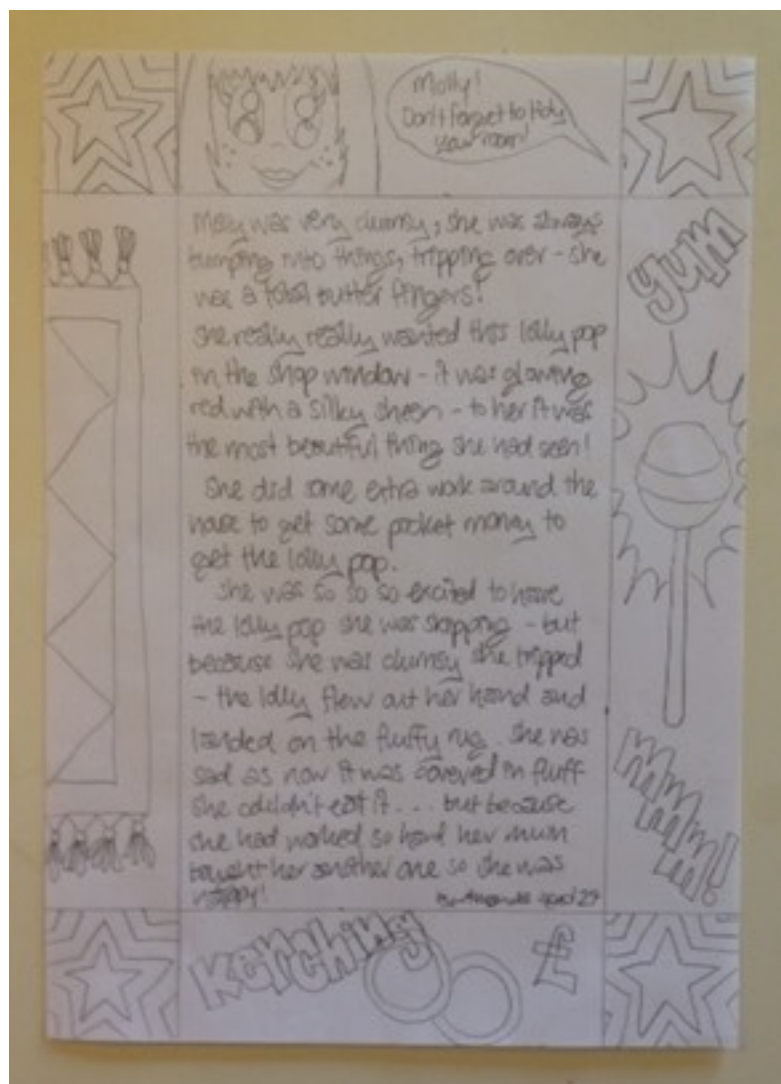 Molly!
Don't forget to tidy
your room!
Molly was very clumsy, she was always
bumping into things, tripping over - she
was a total butter fingers!
She really really wanted this lolly pop
in the shop window - it was glowing
red with a silky sheen - to her it was
the most beautiful thing she had seen!
She did some extra work around the
house to get some pocket money to
get the lolly pop.
She was so so so excited to have
the lolly pop she was skipping - but
because she was clumsy she tripped
- the lolly flew out her hand and
landed on the fluffy rug. She was
sad as now it was covered in fluff
she couldn't eat it... but because
she had worked so hard her mum
bought her another one so she was
happy!
aged 29
yum
mmmm!
Kerching
£